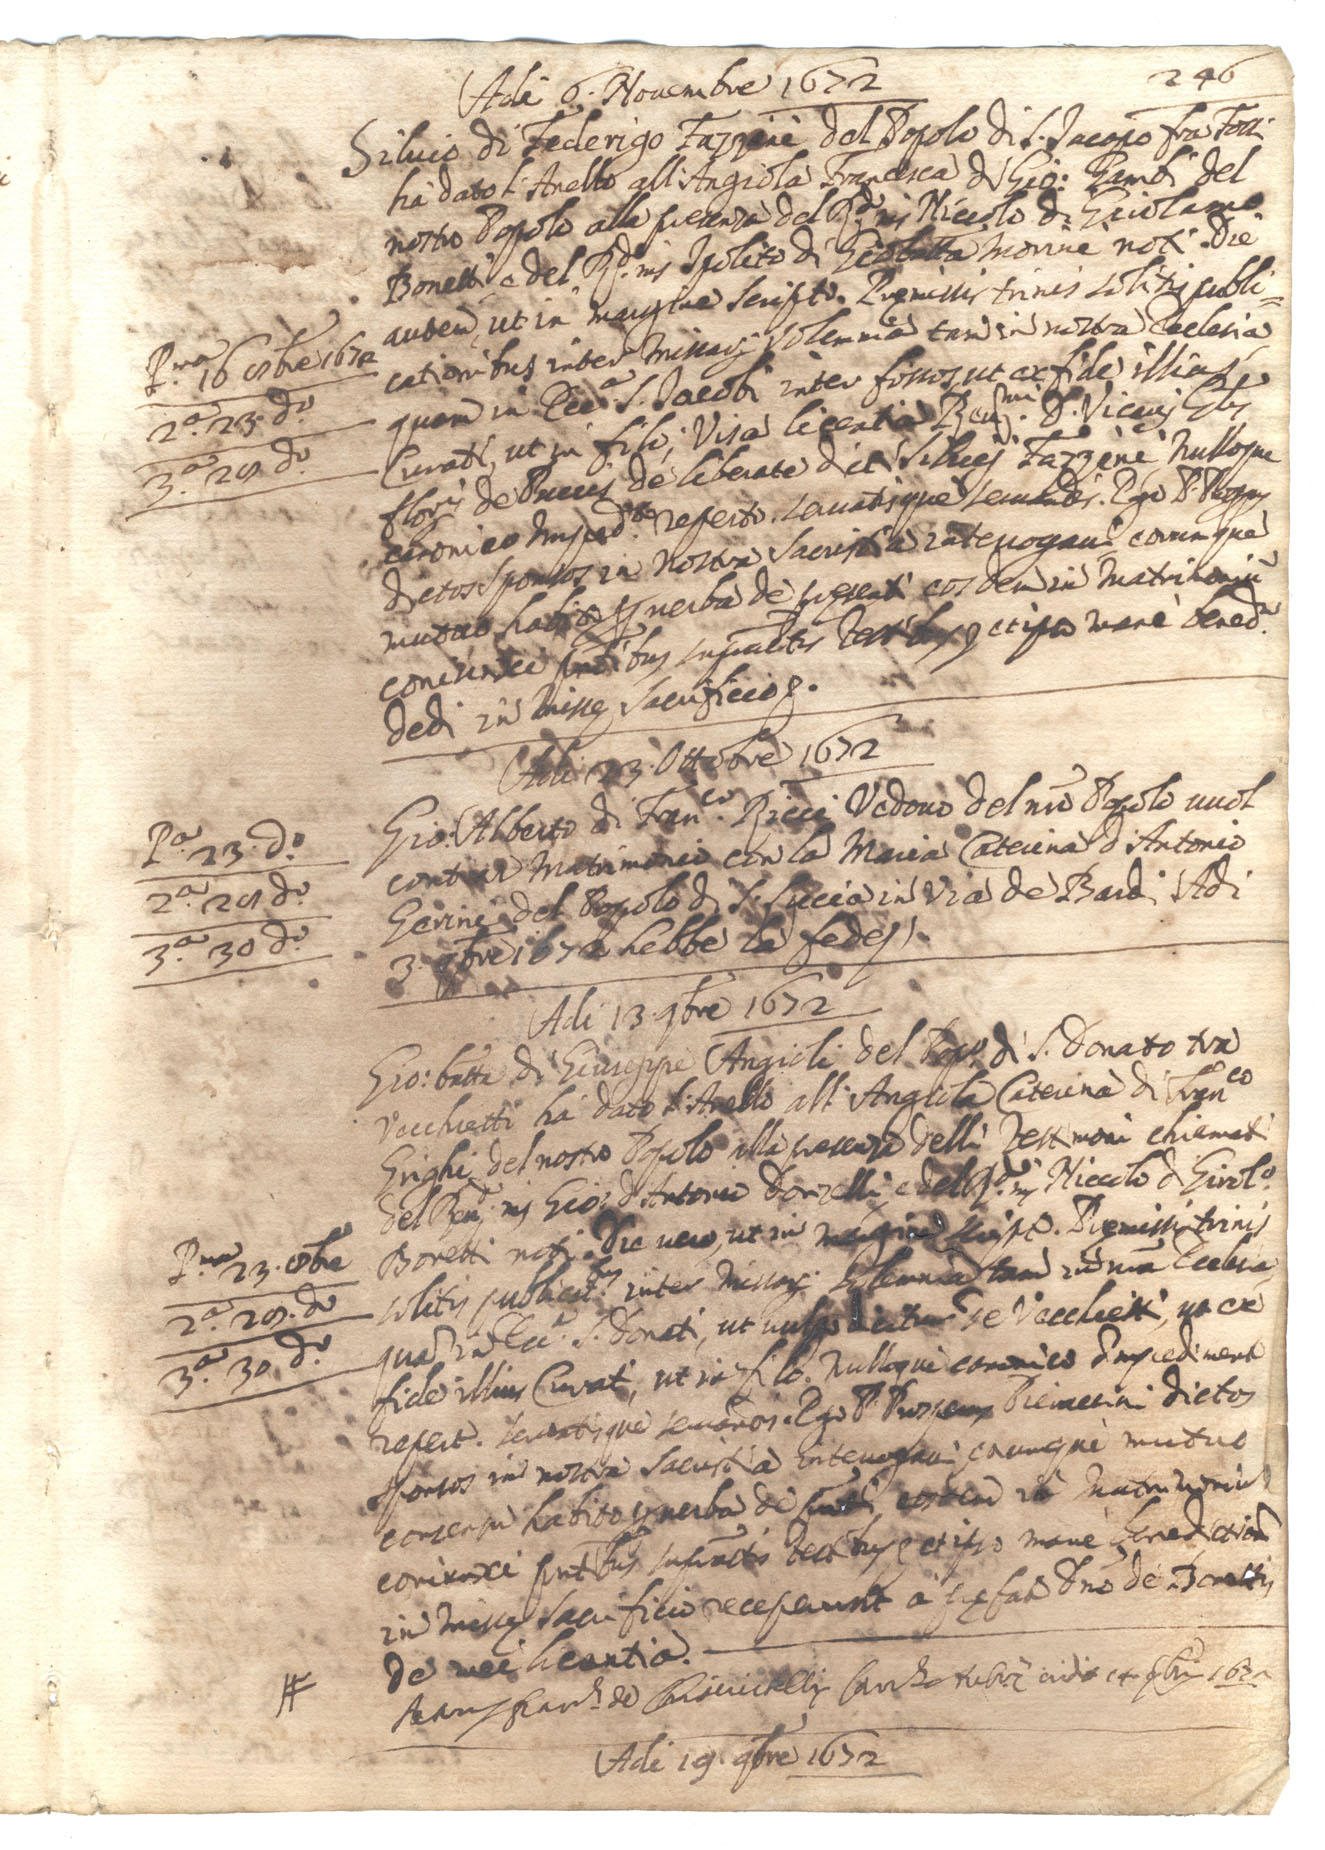 246
Adi 6. Novembre 1672
Silvio di Federigo Fazzini del Popolo di S. Jacopo fra Fossi
ha dato l'Anello all'Angiola Francesca di Gio: Bambi del
nostro Popolo alla presenza del Rd.o ms Niccolo di Girolamo
Bonetti, e del Rd.o ms Ipolito di Giobatta Morini noti. Die
autem, ut in margine script. Premissis trinis solitis publi=
cationibus inter Missarum solemnia tam in nostra Ecclesia
quam in Ecc.a S. Jacobi inter fossos, ut ex fide illius
Curati, ut in filo; Visa licentia
de liberate dicti Silvij Fazzini, Nulloque
canonico Imped.to reperto. servatisque servandis. Ego P.
dictos sponsos in nostra Sacristia interrogavi eorumque
mutuo habito p verba de presenti eosdem in Matrimoniũ
coniunxi pñtibus suprascritis testibus, et ipso mane bened.nem
dedi in Misse Sacrificio.
P.ma 16 8bre 1672
2.a 23. d.o
3.a 28 d.o
Adi 23. Ottobre 1672
Gio: Alberto di Fran.co Ricci Vedovo del nrõ Popolo vuol
contrar Matrimonio con la Maria Caterina d'Antonio
Gerini del Popolo di S. Lucia in Via de Bardi. Adi
3. 9bre 1672 hebbe la fede.
P.a 23. d.o
2.a 28 d.o
3.a 30 d.o
Adi 13. 9bre 1672
Gio: batta di Giuseppe Angioli del Pop.o di S. Donato tra
Vecchietti ha dato l'Anello all'Angiola Caterina di Fran.co
Grighi del nostro Popolo alla presenza delli Testimoni chiamati
del ms Gio: d'Antonio Donzelli, e del Rd.o ms Niccolo di Girol.o
Bonetti noti. Die vero, ut in margine script. Premissis trinis
solitis publicat.bus inter Missarum Solemnia tam in nrã Ecclesia
quã in Ecc.a S. Donati, ut vulgo dicitur de Vecchietti, ut ex
fide illius Curati, ut in filo. Nulloque canonico Impediment
repert. servatisque servandis. Ego P. Pieracini dictos
sponsos in nostra Sacristia interrogavi, eorumque mutuo
consensu habito p verba de pñti, eosdem in Matrimoniũ
coniunxi pñtibus suprascritis testibus, et ipso mane benedictionẽ
in Misse Sacrificio receperunt a prefato Dno de Bonettis
de mei licentia.
P.ma 23. 8bre
2.a 28. d.o
3.a 30 d.o
Adi 19. 9bre 1672